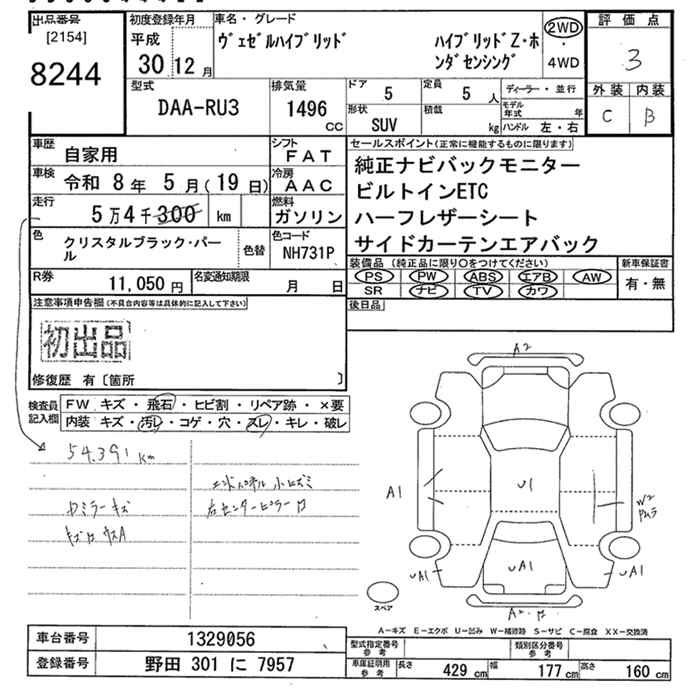 出品番号
[2154]
8244
初度登録年月
平成
30 12 月
車名・グレード
ヴェゼルハイブリッド
ハイブリッドZ・ホ
ンダセンシング
2WD
・
4WD
評価点
3
外装 内装
C B
型式
DAA-RU3
排気量
1496
cc
ドア
5
定員
5 人
形状
SUV
積載
kg
ディーラー・並行
モデル
年式 年
ハンドル 左・右
車歴
自家用
シフト
FAT
車検
令和 8 年 5 月(19 日)
冷房
AAC
走行
5万4千300 km
燃料
ガソリン
色
クリスタルブラック・パー
ル
色替
色コード
NH731P
R券
11,050 円
名変通知期限
月 日
セールスポイント(正常に機能するものに限ります)
純正ナビバックモニター
ビルトインETC
ハーフレザーシート
サイドカーテンエアバック
装備品(純正品に限り○をつけてください)
PS PW ABS エアB AW
SR ナビ TV カワ
新車保証書
有・無
後日品
注意事項申告欄(不具合内容等は具体的に記入して下さい)
初出品
修復歴 有〔箇所 〕
検査員
記入欄
FW キズ・飛石・ヒビ割・リペア跡・×要
内装 キズ・汚レ・コゲ・穴・スレ・キレ・破レ
54.391 km
エンドパネル 小ヒズミ
右センターピラー
ミラーキズ
A2
A1
U1
W2
UA1
UA1
UA1
A2
スペア
A－キズ E－エクボ U－凹み W－補修跡 S－サビ C－腐食 XX－交換済
車台番号
1329056
登録番号
野田 301 に 7957
型式指定番号
参考
類別区分番号
参考
車庫証明用
参考
長さ 429 cm 幅 177 cm 高さ 160 cm